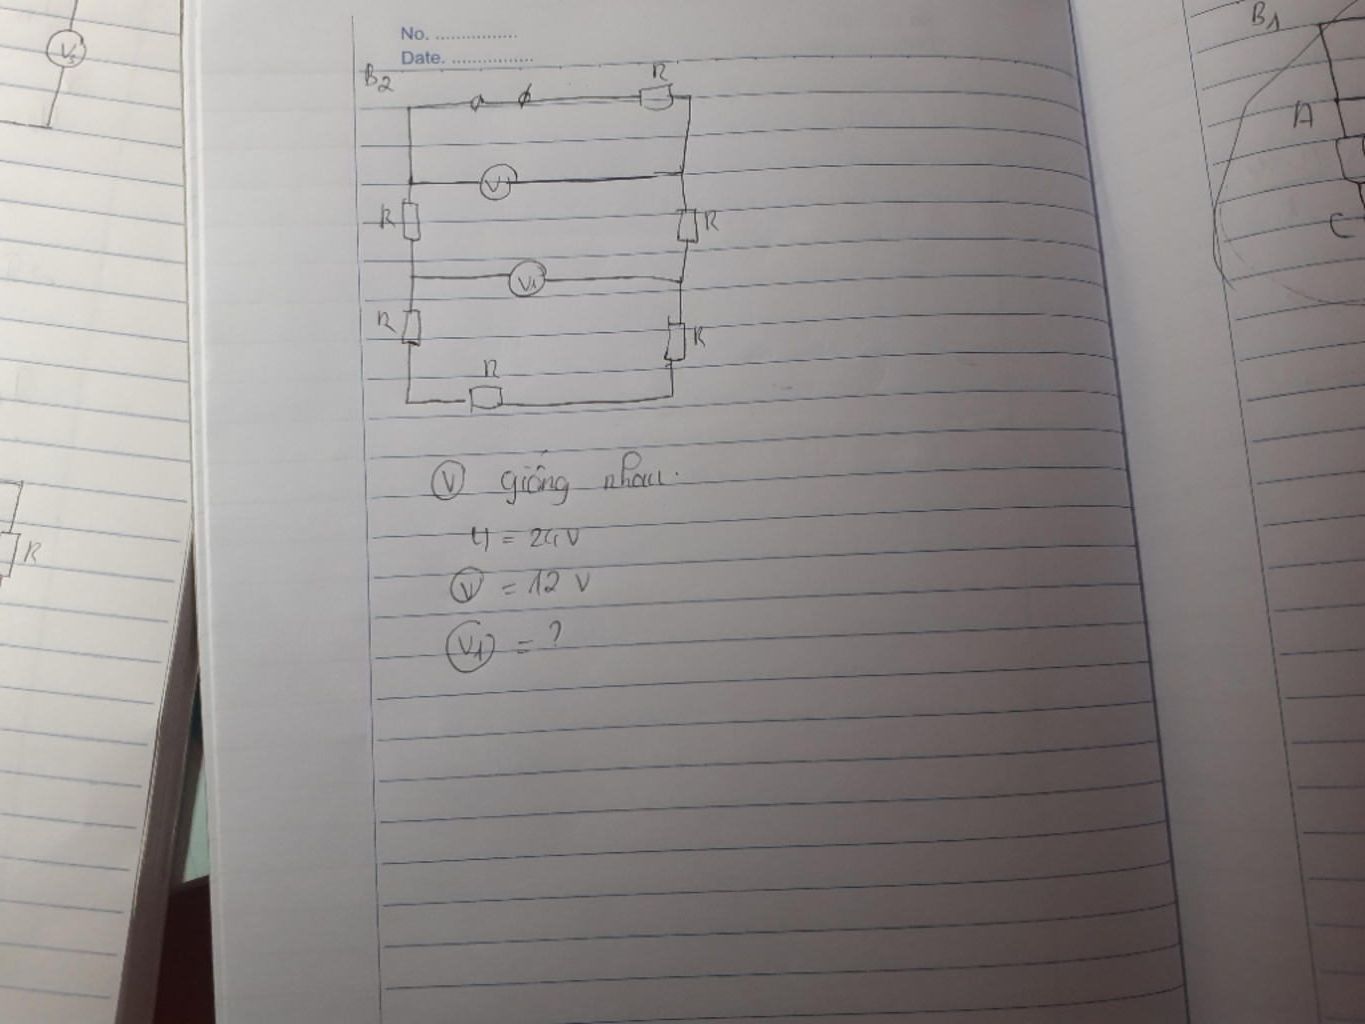 No. ................
Date. ................
B2
R
V
R
R
V1
R
R
R
V giống nhau.
U = 24V
V = 12 V
V1 = ?
V3
R
B1
A
C